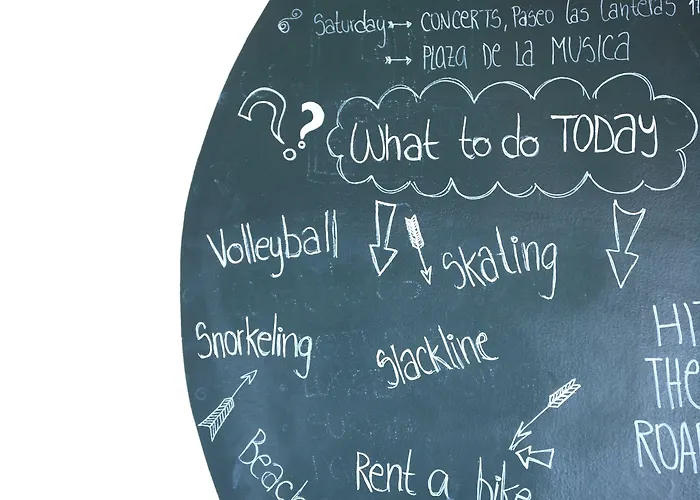 Saturday CONCERTS, Paseo las Canteras 17
PLAZA DE LA MUSICA
?? What to do TODAY
Volleyball Skating
Snorkeling Slackline
HIT
THE
ROAD
Beach Rent a bike